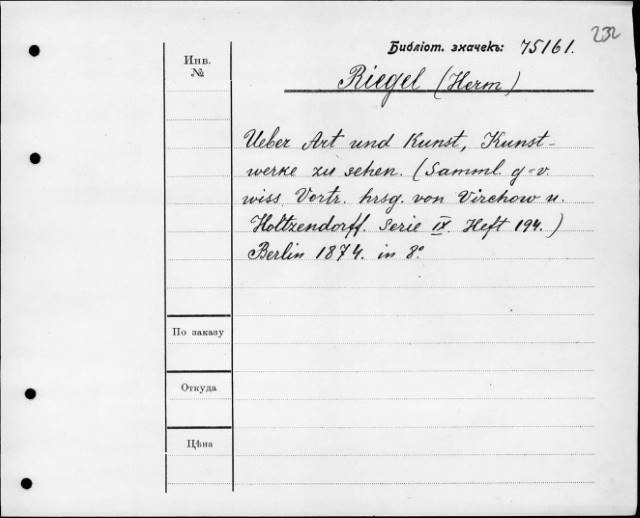 232
Библіот. значекъ: 75161.
Инв.
№
Riegel (Herm)
Ueber Art und Kunst, Kunst-
werke zu sehen. (Samml. g=v.
wiss. Vortr. hrsg. von Virchow u.
Holtzendorff. Serie IX. Heft 194.)
Berlin 1874. in 8°
По заказу
Откуда
Цѣна